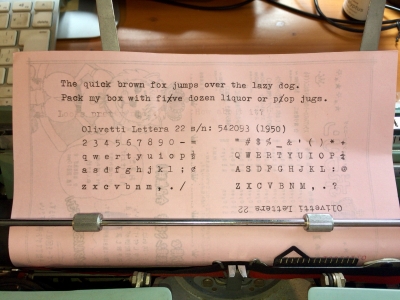 The quick brown fox jumps over the lazy dog.
Pack my box with fi/ve dozen liquor or p/op jugs.
Olivetti Lettera 22 s/n: 542093 (1950)
2 3 4 5 6 7 8 9 0 - = " # $ % _ & ' ( ) * +
q w e r t y u i o p ½ Q W E R T Y U I O P ¼
a s d f g h j k l ; ¢ A S D F G H J K L : @
z x c v b n m , . / Z X C V B N M , . ?
Olivetti Lettera 22